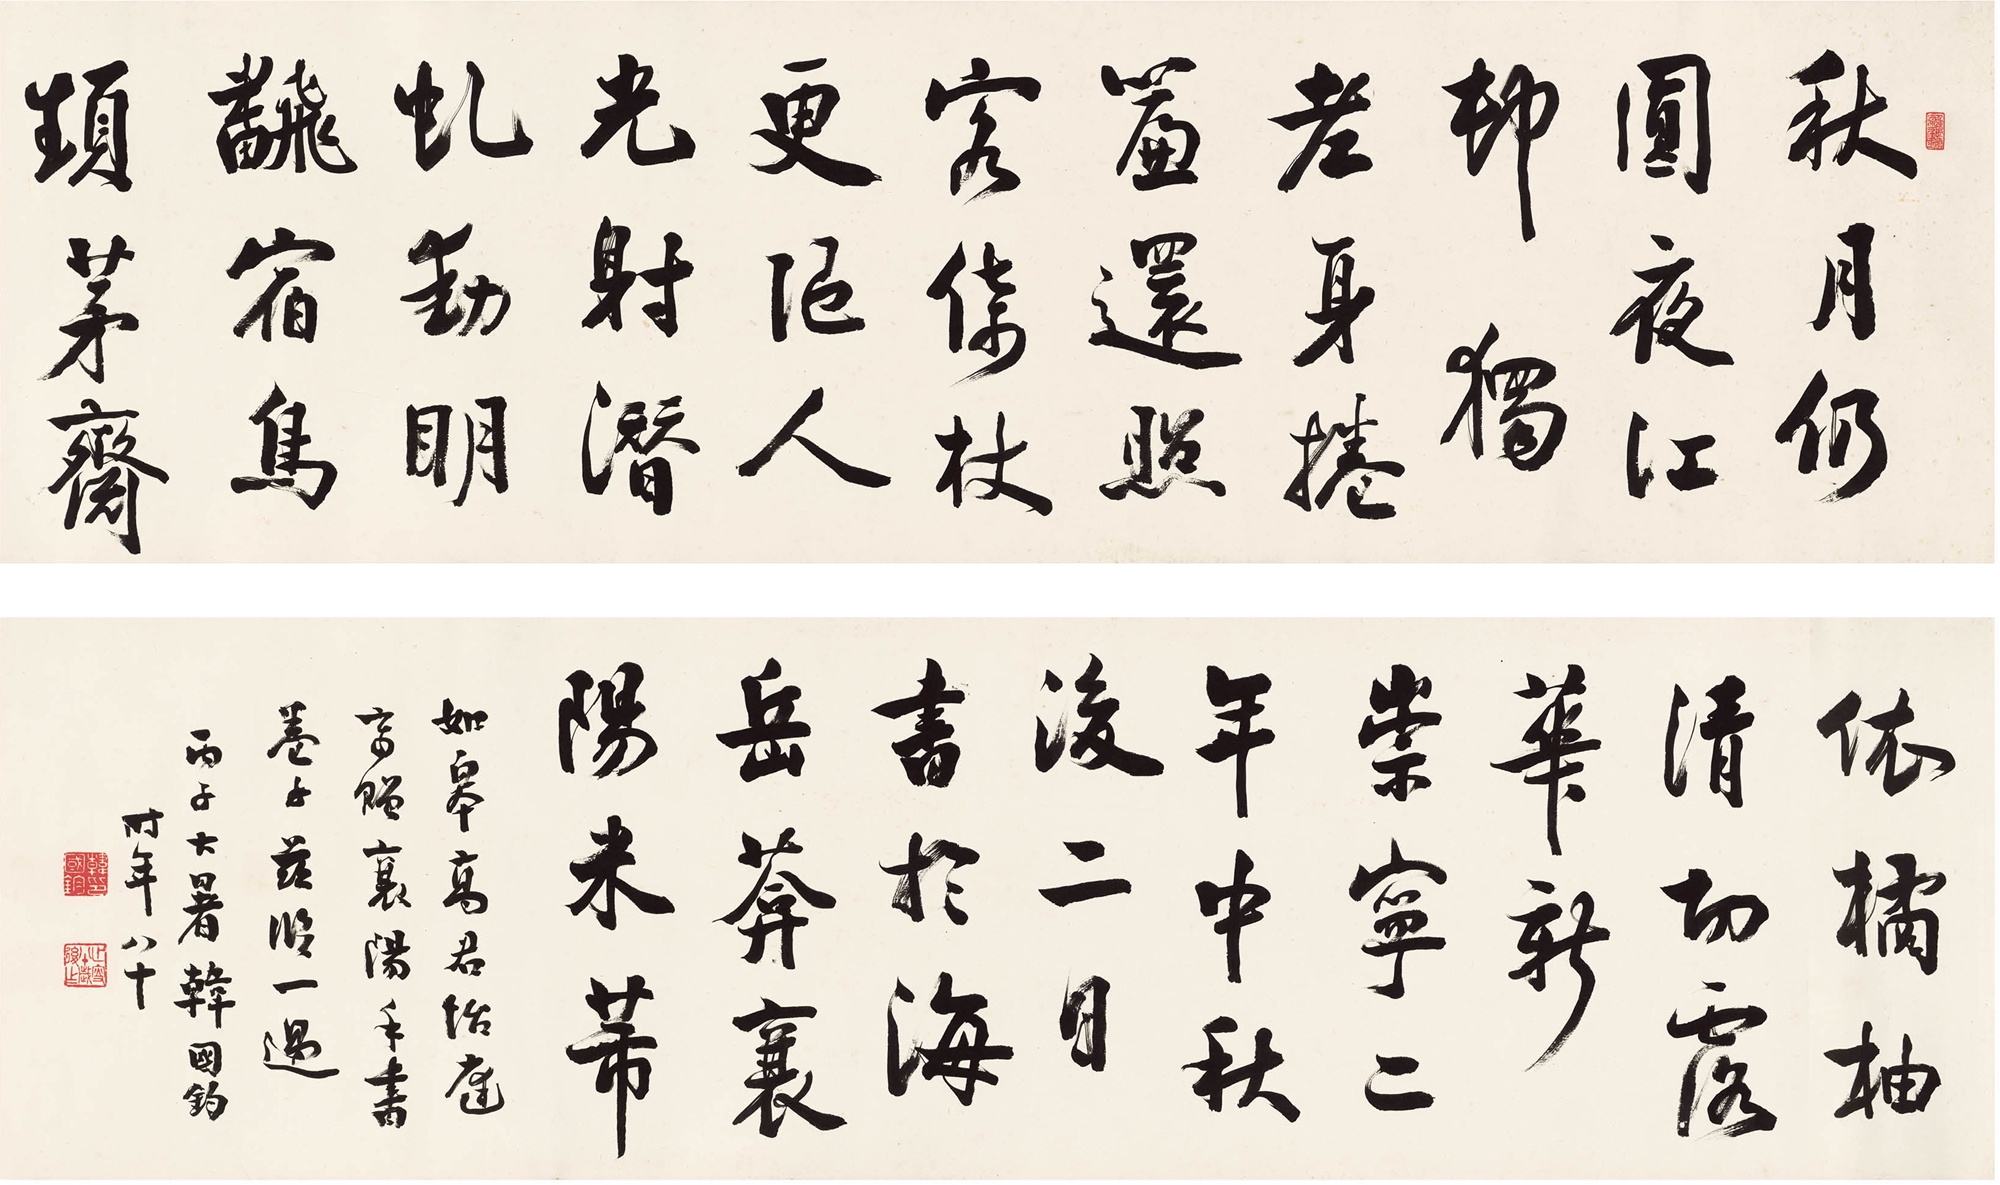 秋月仍
圓夜江
邨獨
老身捲
簾還照
客倚杖
更隨人
光射潛
虬動明
飜宿鳥
頻茅齋
依橘柚
清切露
華新
崇寧二
年中秋
後二日
書於海
岳菴襄
陽米芾
如皋高君怡庭
寄贈襄陽手書
卷子茲臨一過
丙子大暑韓國鈞
時年八十